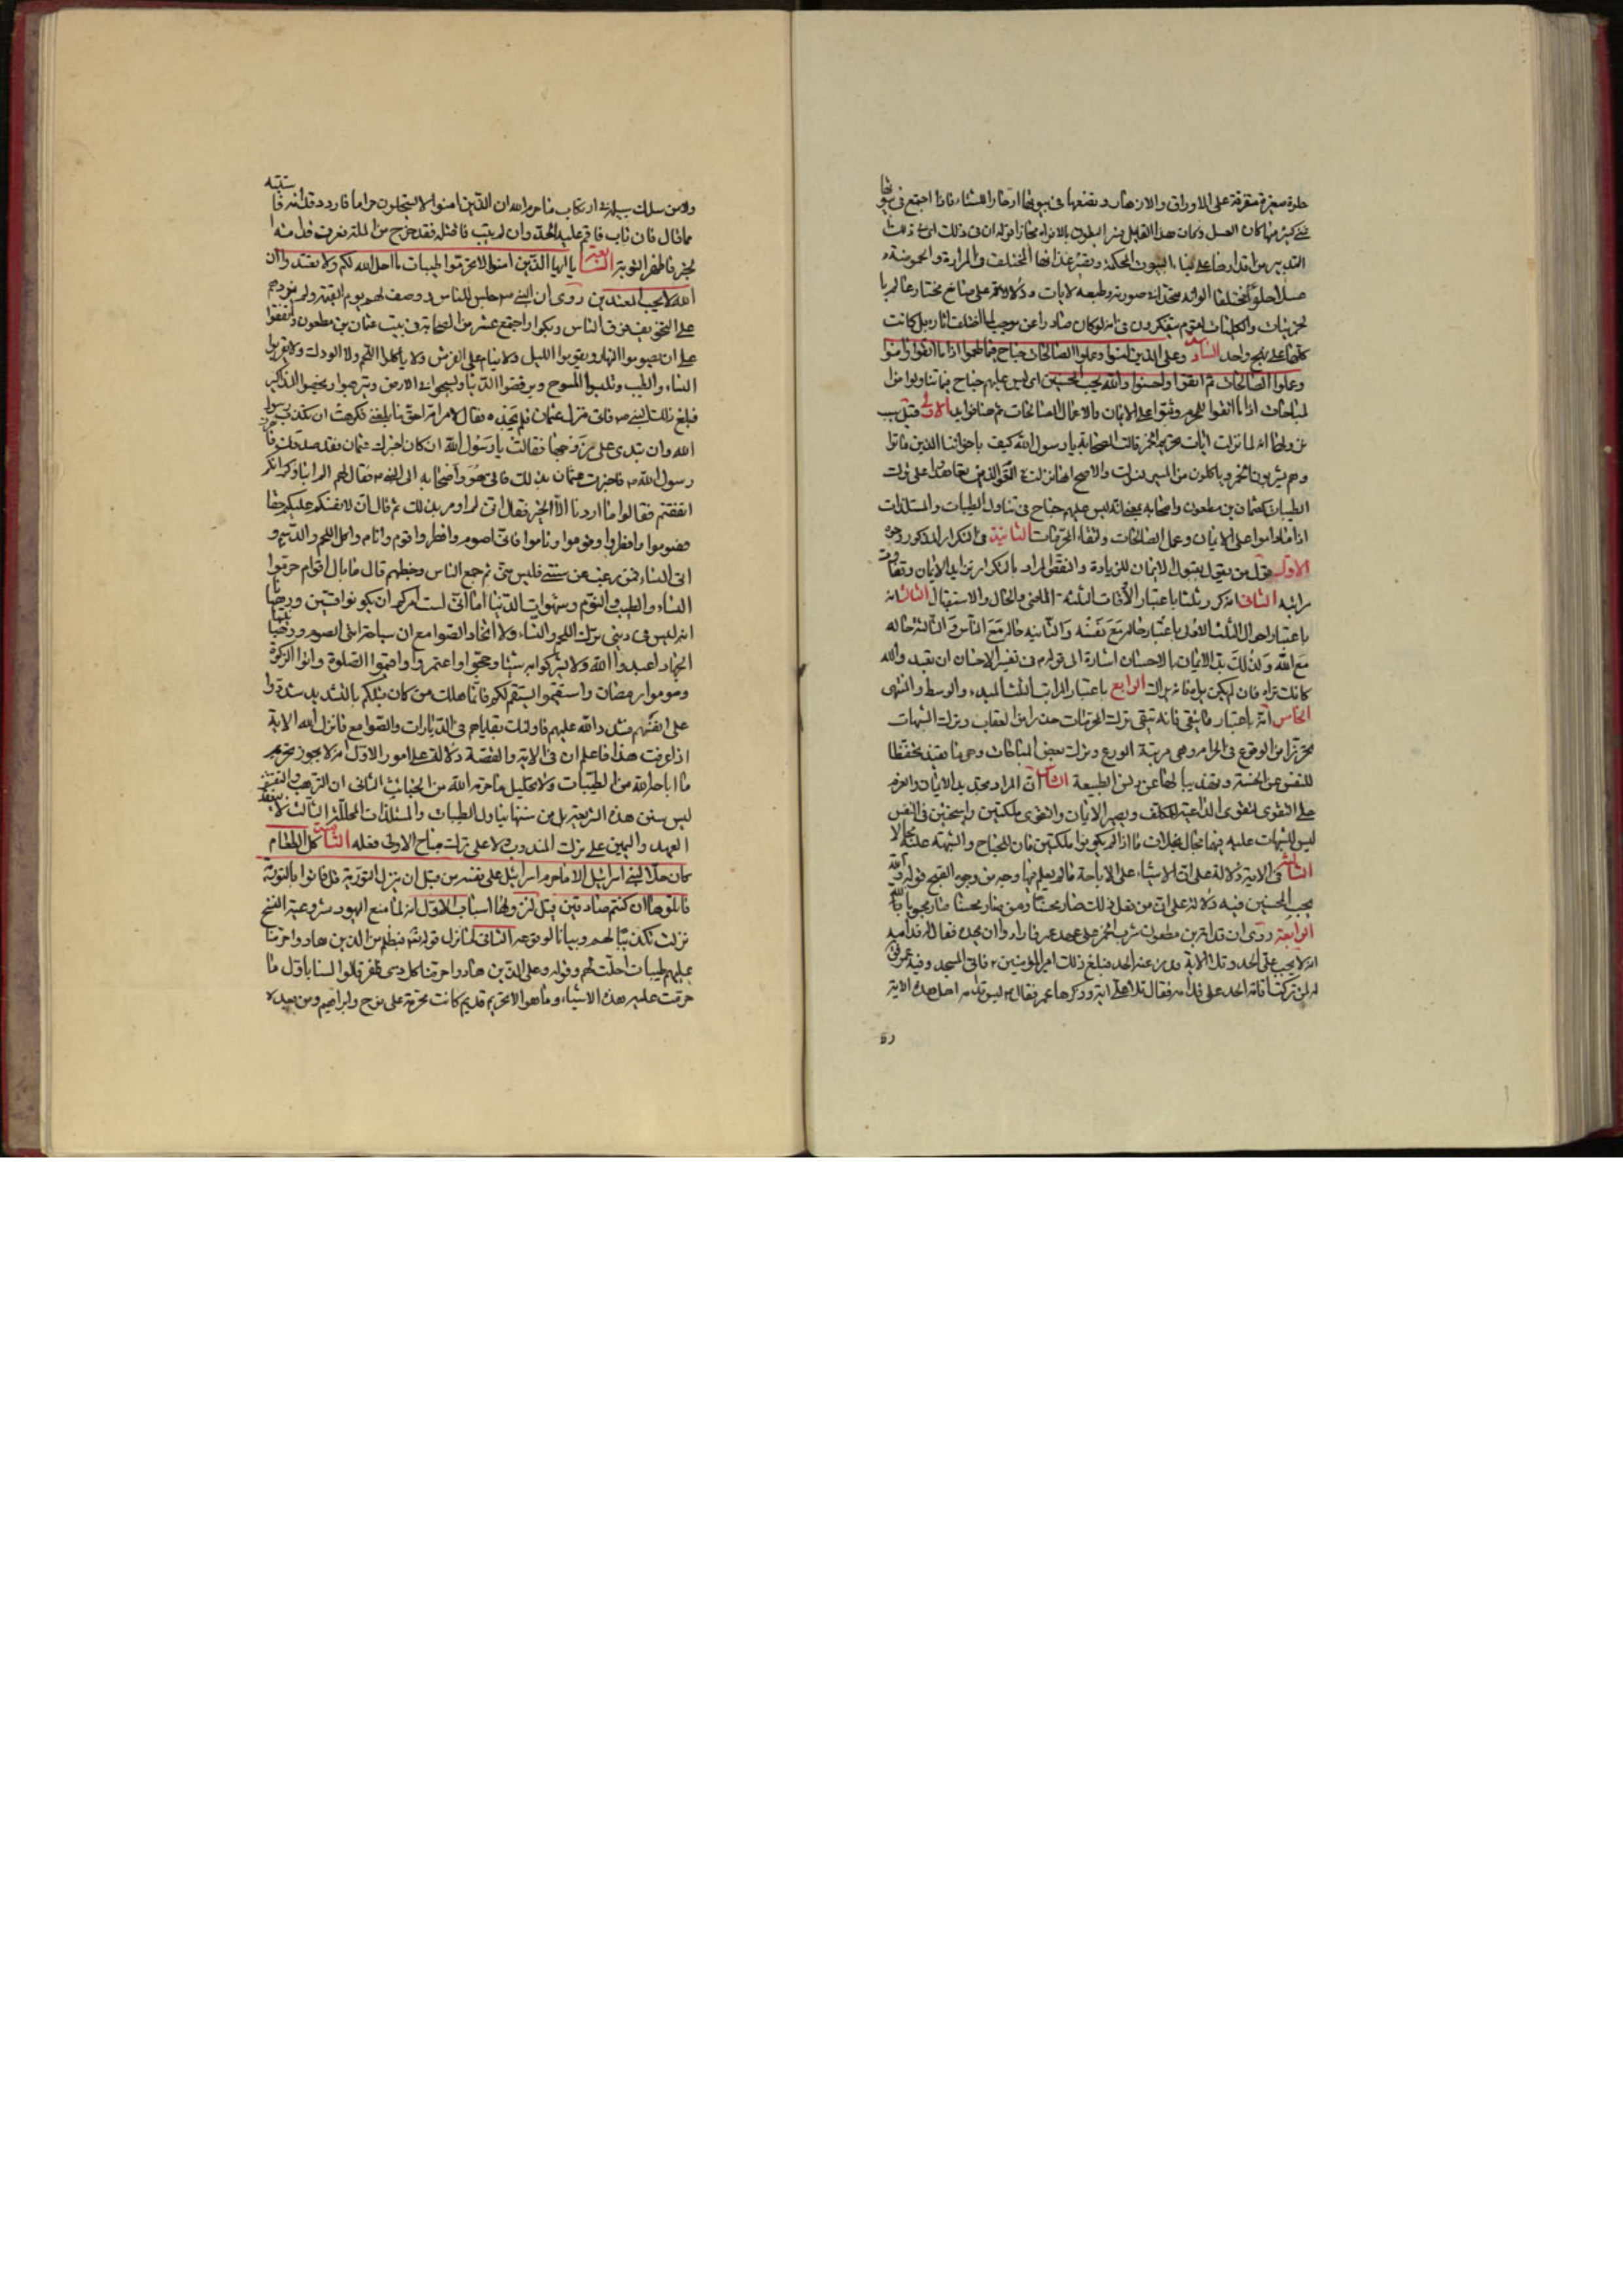 حلوة صغيرة متفرقة على الاوراق والازهار وتضعها فى بيوتها ادخارا للشتاء فاذا اجتمع فى بيوتها
شئ كثير منها كان العسل
عسلا حلوا مختلفا الوانه
لقوم يتفكرون فى انه لو كان صادرا عن موجب لما اختلف اثاره بل كانت
كلها على نهج واحد السادسة وعلى الذين امنوا وعملوا الصالحات جناح فيما طعموا اذا ما اتقوا وامنوا
وعملوا الصالحات ثم اتقوا واحسنوا والله يحب المحسنين اى ليس عليهم جناح فيما تناولوا من
المباحات اذا ما اتقوا المحرم وثبتوا على الايمان والاعمال الصالحات ثم هنا فوايد الاولى قيل سبب
نزولها انه لما نزلت ايات تحريم الخمر قالت الصحابة يا رسول الله كيف باخواننا الذين ماتوا
وهم يشربون الخمر وياكلون من الميسر فنزلت والاصح انها نزلت فى القوم الذين تعاهدوا على ترك
الطيبات كعثمان بن مظعون واصحابه بمعنى انه ليس عليهم جناح فى تناول الطيبات والمستلذات
اذا ما داموا على الايمان وعمل الصالحات واتقاء المحرمات الثانية فى التكرار المذكور وجوه
الاول قول من يقول بقبول الايمان للزيادة والنقص المراد بالتكرار تزايد الايمان وتفاوت
مراتبه الثانى انه كرر ثلثا باعتبار الاوقات الثلثة الماضى والحال والاستقبال الثالث انه
باعتبار احوال الثلث الاولى باعتبار حاله مع نفسه والثانية حاله مع الناس والثالثة حاله
مع الله ولذلك بدل الايمان بالاحسان اشارة الى قوله فى تفسير الاحسان ان تعبد الله
كانك تراه فان لم تكن تراه فانه يراك الرابع باعتبار المراتب الثلث المبدء والوسط والمنتهى
الخامس انه باعتبار ما يتقى فانه يتقى بترك المحرمات حذرا من العقاب وبترك الشبهات
تحرزا من الوقوع فى الحرام وهى مرتبة الورع وبترك بعض المباحات وهى مما يفيد تحفظا
للنفس عن الخسة وتهذيبا لها عن دنس الطبيعة السادس ان المراد
على التقوى ويصير الايمان والتقوى ملكتين راسختين فى النفس
ليس للشبهات عليه فيهما مجال بخلاف ما اذا لم يكونوا ملكتين فان للجناح والشبهة عليه مجالا
الثالثة فى الاية دلالة على ان الاشياء على الاباحة ما لم يعلم فيها وجه من وجوه القبح قوله والله
يحب المحسنين فيه دلالة على ان من فعل ذلك صار محسنا ومن صار محسنا صار محبوبا لله
الرابعة روى ان قدامة بن مظعون شرب الخمر على عهد عمر فاراد ان يحده فقال له قدامة
انه لا يجب على الحد وتلا الاية فدرء عنه الحد فبلغ ذلك امير المؤمنين ع فاتى المسجد وفيه عمر فقال
له لم تركت اقامة الحد على قدامة فقال تلا على اية وذكرها عمر فقال ع ليس قدامة من اهل هذه الاية
ولا من سلك سبيله فى ارتكاب ما حرم الله ان الذين امنوا لا يستحلون حراما فاردد قدامة فاستتبه
مما قال فان تاب فاقم عليه الحد وان لم يتب فاقتله فقد خرج من الملة فعرف قدامة
الخبر فاظهر التوبة السابعة يا ايها الذين امنوا لا تحرموا طيبات ما احل الله لكم ولا تعتدوا ان
الله لا يحب المعتدين روى ان النبى ص جلس للناس ووصف لهم يوم القيمة ولم يزدهم
على التخويف فرق الناس وبكوا واجتمع عشرة من الصحابة فى بيت عثمان بن مظعون واتفقوا
على ان يصوموا النهار ويقوموا الليل ولا يناموا على الفرش ولا ياكلوا اللحم ولا الودك ولا يقربوا
النساء والطيب ويلبسوا المسوح ويرفضوا الدنيا ويسيحوا فى الارض ويترهبوا ويخصوا المذاكير
فبلغ ذلك النبى ص فاتى منزل عثمان فلم يجده فقال لامراته احق ما بلغنى فكرهت ان تكذب رسول
الله وان تبدى على زوجها فقالت يا رسول الله ان كان اخبرك عثمان فقد صدقك فانصرف
رسول الله ص فاخبرت عثمان بذلك فاتى هو واصحابه الى النبى ص فقال لهم الم انبا انكم
اتفقتم فقالوا ما اردنا الا الخير فقال انى لم اومر بذلك ثم قال ان لانفسكم عليكم حقا
فصوموا وافطروا وقوموا وناموا فانى اصوم وافطر واقوم وانام واكل اللحم والدسم و
اتى النساء فمن رغب عن سنتى فليس منى ثم جمع الناس وخطبهم قال ما بال اقوام حرموا
النساء والطيب والنوم وشهوات الدنيا اما انى لست امركم ان تكونوا قسيسين ورهبانا
انه ليس فى دينى ترك اللحم والنساء ولا اتخاذ الصوامع ان سياحة امتى الصوم ورهبانيتها
الجهاد اعبدوا الله ولا تشركوا به شيئا وحجوا واعتمروا واقيموا الصلوة واتوا الزكوة
وصوموا رمضان واستقيموا يستقم لكم فانما هلك من كان قبلكم بالتشديد شددوا
على انفسهم فشدد الله عليهم فاولئك بقاياهم فى الديارات والصوامع فانزل الله الاية
اذا عرفت هذا فاعلم ان فى الاية والقصة دلالة على امور الاول انه لا يجوز تحريم
ما اباحه الله من الطيبات ولا تحليل ما حرمه الله من الخبائث الثانى ان الترهب والتقشف
ليس من سنن هذه الشريعة بل من سننها تناول الطيبات والمستلذات المحللة الثالث لا ينعقد
العهد واليمين على ترك المندوب ولا على ترك مباح الاولى فعله الثامنة كل الطعام
كان حلا لبنى اسرائيل الا ما حرم اسرائيل على نفسه من قبل ان تنزل التورية قل فاتوا بالتورية
فاتلوها ان كنتم صادقين قيل لنزولها اسباب الاول انه لما منع اليهود مشروعية النسخ
نزلت تكذيبا لهم وبيانا لوقوعه الثانى لما نزل قوله تعالى فبظلم من الذين هادوا حرمنا
عليهم طيبات احلت لهم وقوله وعلى الذين هادوا حرمنا كل ذى ظفر قالوا لسنا باول من
حرمت عليه هذه الاشياء وما هو الا تحريم قديم كانت محرمة على نوح وابراهيم ومن بعده